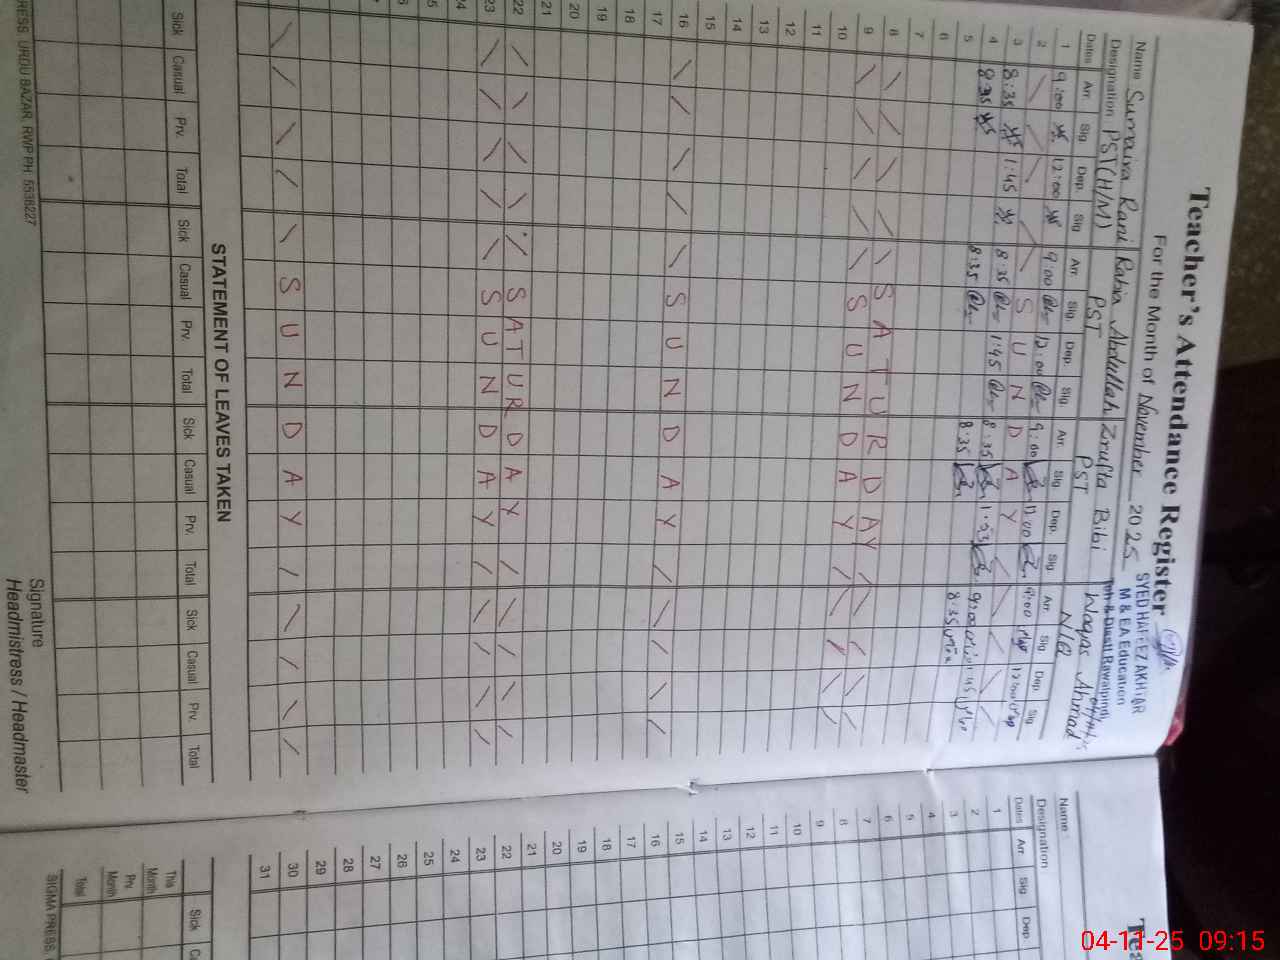 Teacher's Attendance Register
For the Month of November 2025
SYED HAFEEZ AKHTAR
M & EA Education
Teh & Distt Rawalpindi
Name Sumaira Rani Rabia Abdullah Zrufta Bibi Waqas Ahmad
Designation PST(H/M) PST PST
Dates Arr. Sig. Dep. Sig Arr. Sig. Dep. Sig. Arr. Sig Dep. Sig Arr. Sig Dep. Sig
1 9:00 12:00 9:00 12:00 9:00 9:00
2 SUNDAY
3 8:35 1:45 8:35 1:45 8:35
4 8:35 8:35 8:35 8:35
5
6
7
8 SATURDAY
9 SUNDAY
10
11
12
13
14
15
16 SUNDAY
17
18
19
20
21
22 SATURDAY
23 SUNDAY
24
25
SUNDAY
STATEMENT OF LEAVES TAKEN
Sick Casual Prv. Total Sick Casual Prv. Total Sick Casual Prv. Total Sick Casual Prv. Total
Signature
Headmistress / Headmaster
RESS URDU BAZAR, RWP PH: 5536227
Name
Designation
Dates Arr. Sig Dep
1
2
3
4
5
6
7
8
9
10
11
12
13
14
15
16
17
18
19
20
21
22
23
24
25
26
27
28
29
30
31
Sick
This Month
Prv. Month
Total
SIGMA PRESS,
04-11-25 09:15